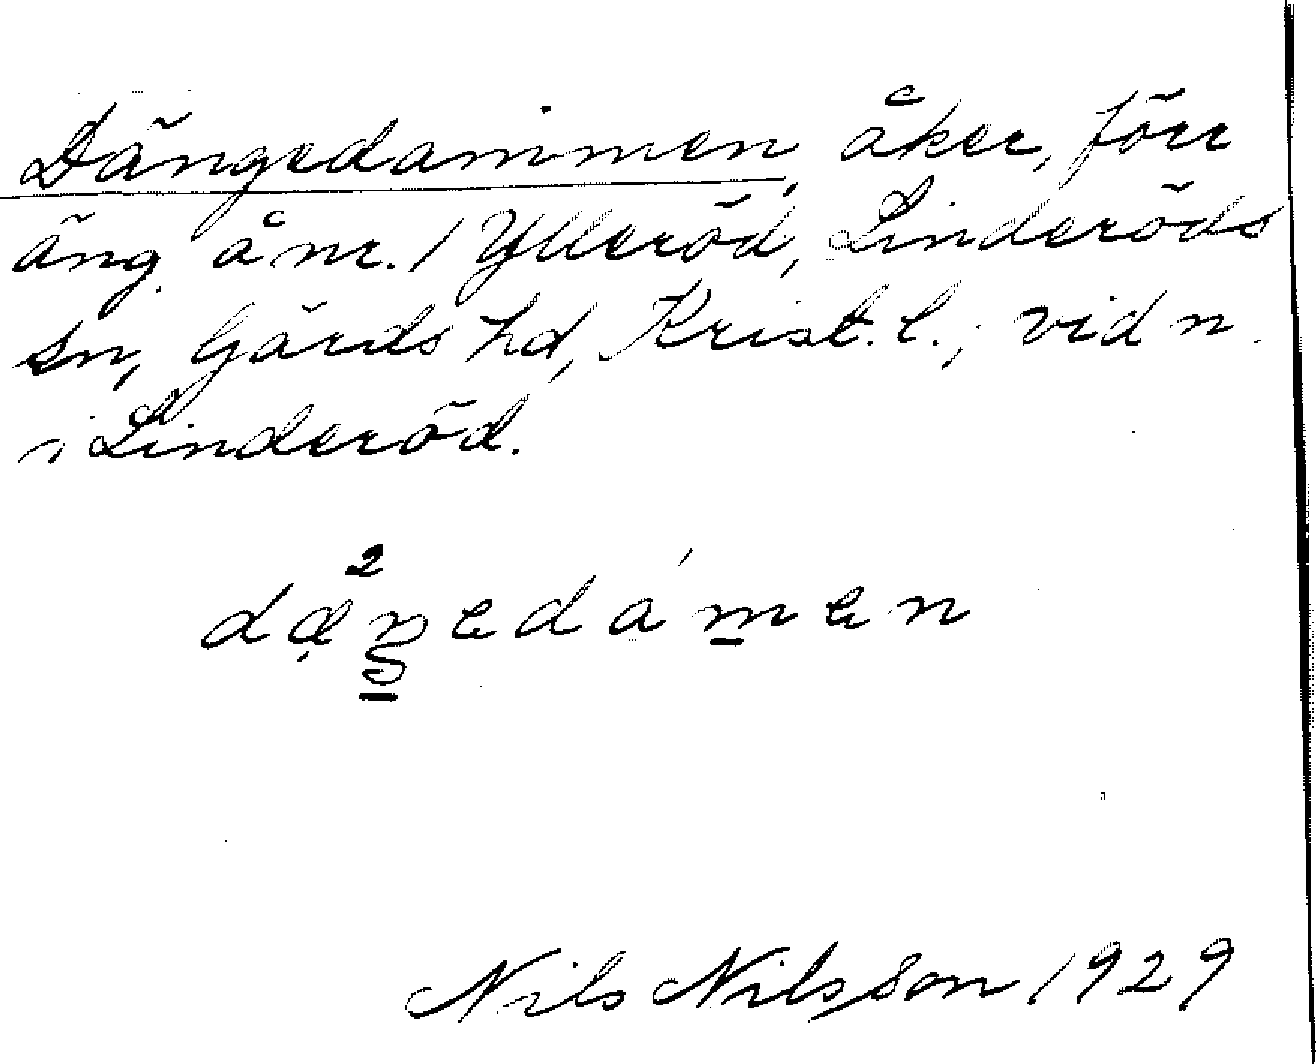 Dängedammen, åker, förr
äng å nr. 1 Ylleröd, Linderöds
sn, Gärds hd, Krist. l.; vid n.
i Linderöd.
dæ²ŋedámen
Nils Nilsson 1929